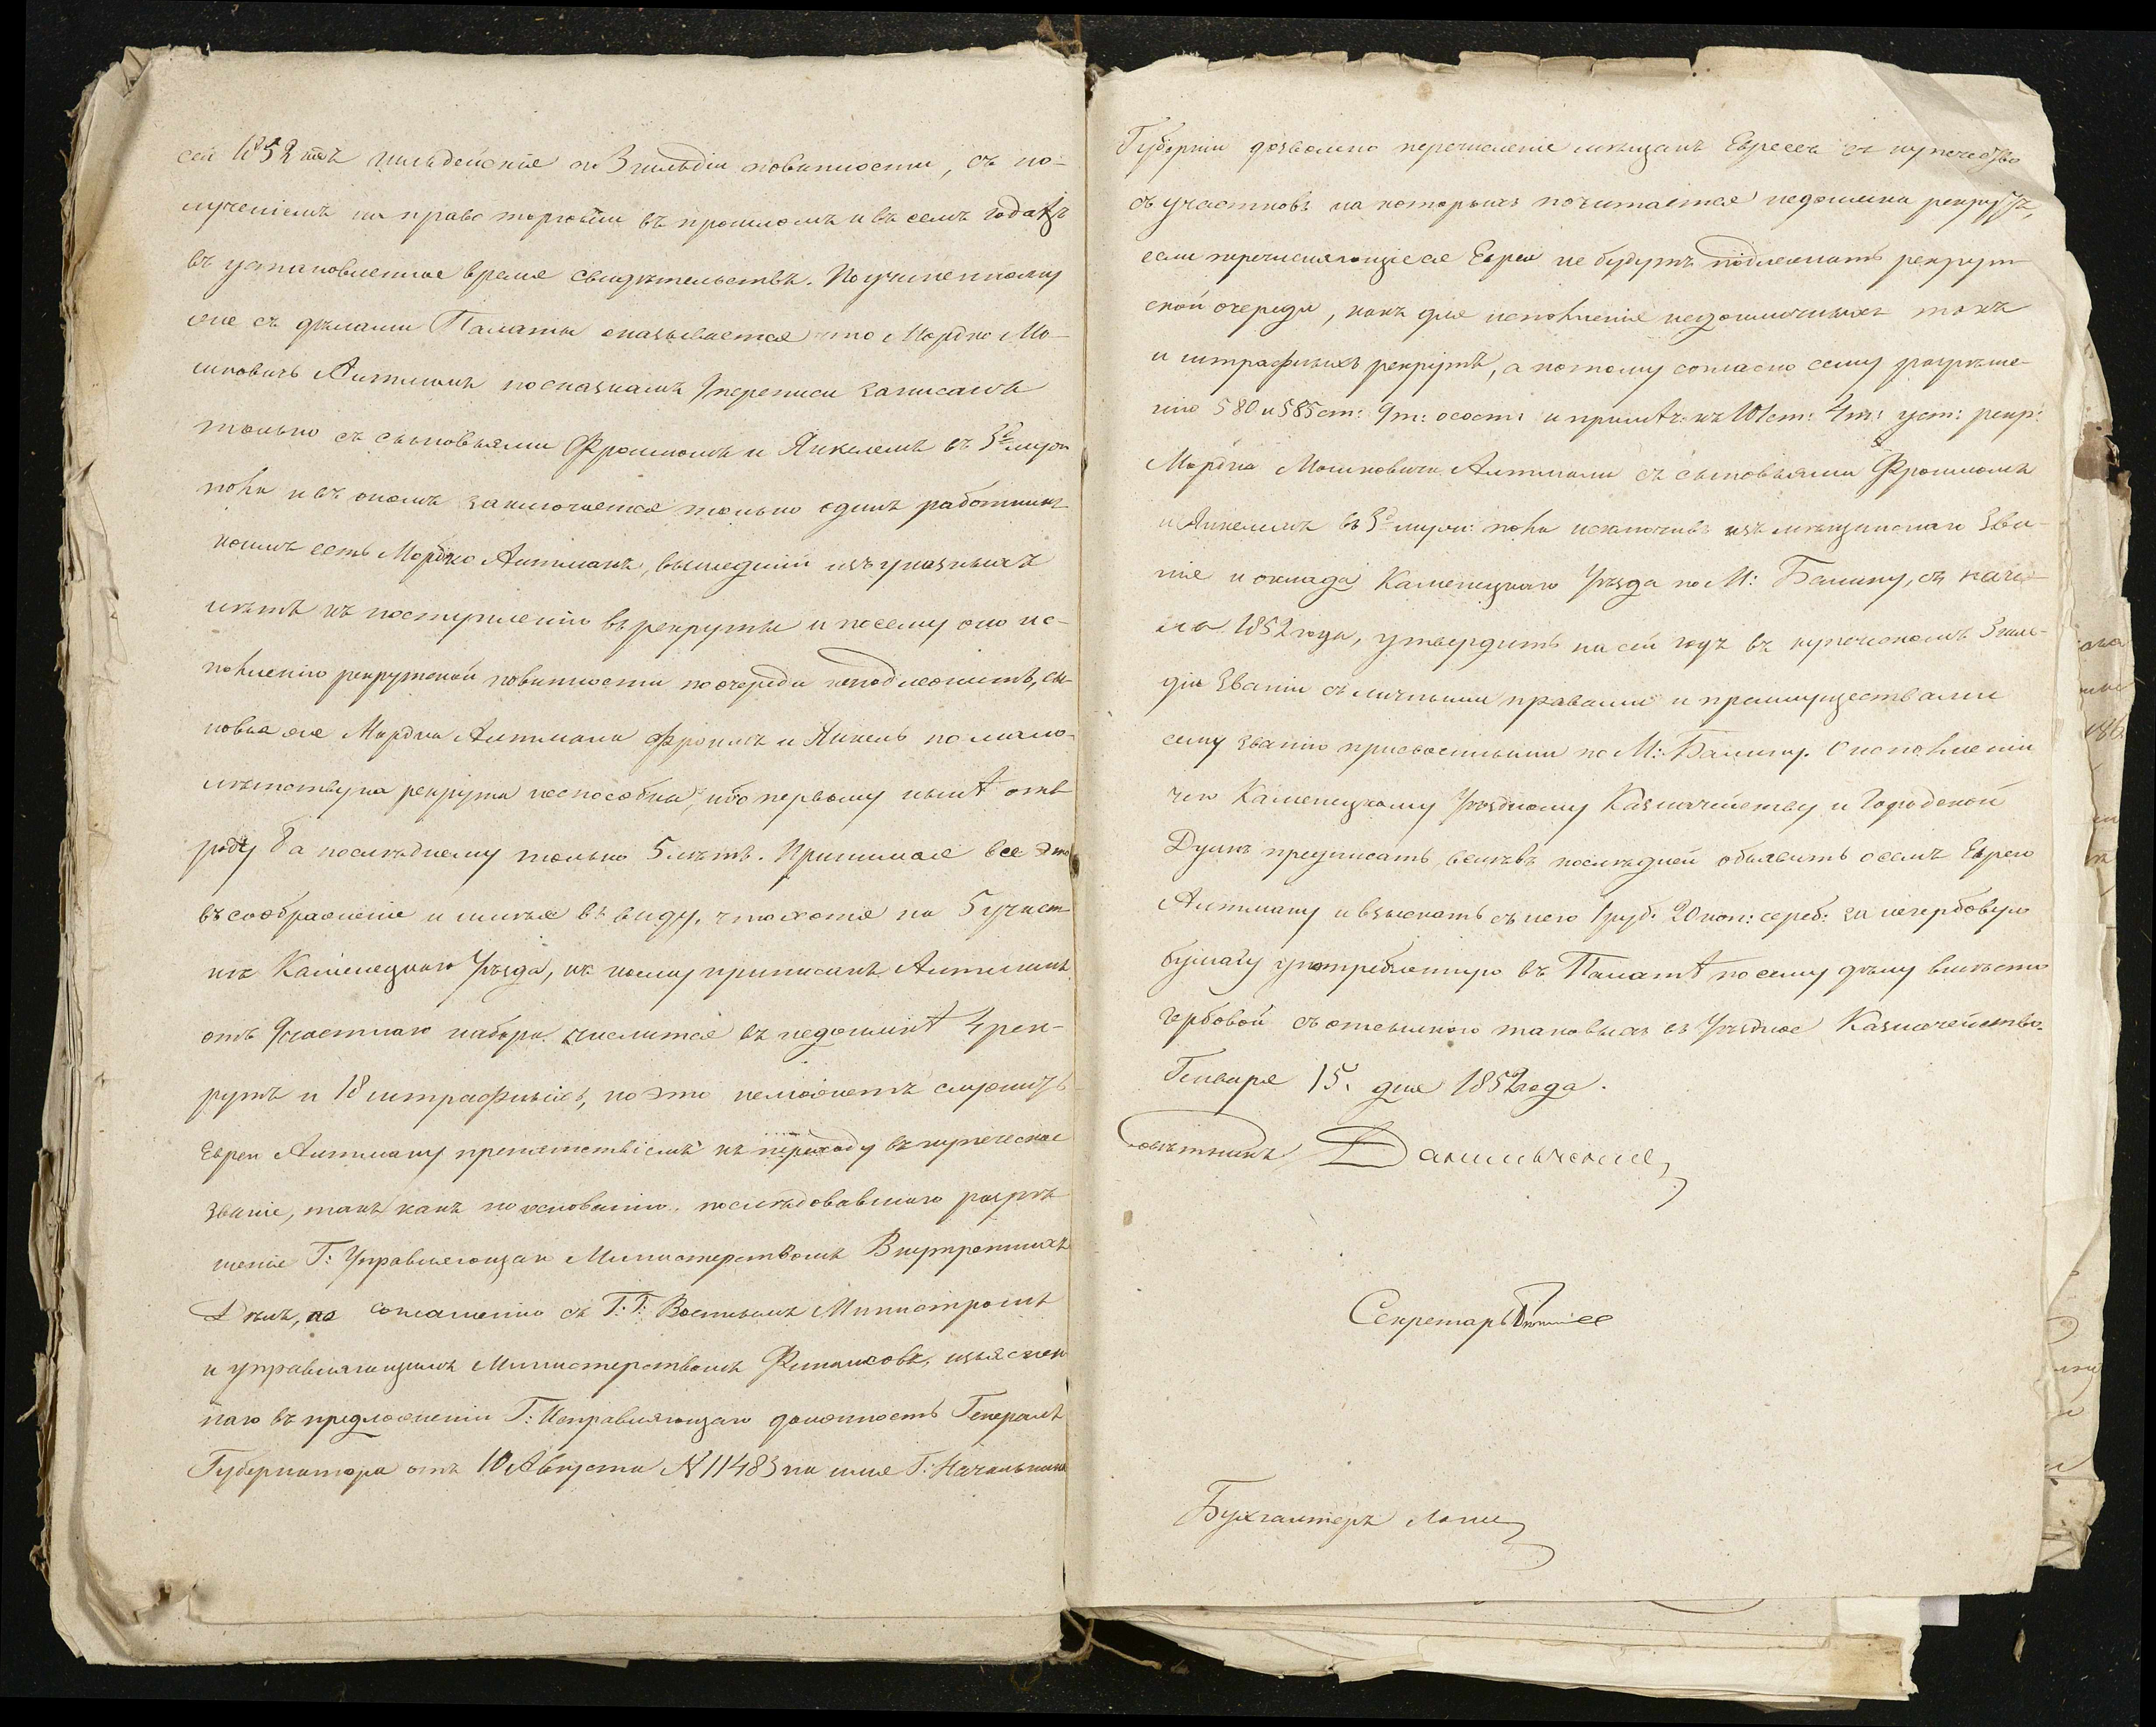 сей 1852 годъ гильдейскіе по 3 гильдіи повинности, съ по-
лученіемъ на право торговли въ прошломъ и въ семъ годахъ
въ установленное время свидѣтельствъ. По учиненному
же съ дѣлами Палаты оказывается что Мордко Мо-
шковичъ Антманъ по сказкамъ переписи записанъ
только съ сыновьями Фроимомъ и Янкелемъ въ 3й муж:
пола и въ ономъ заключается только одинъ работникъ
коимъ есть Мордко Антманъ, вышедшій изъ указныхъ
лѣтъ къ поступленію въ рекруты и посему оно ис-
полненію рекрутской повинности по очереди неподлежитъ, сы-
новья же Мордка Антмана Фроимъ и Янкель по мало-
лѣтству на рекрута неспособны, ибо первому нынѣ отъ
роду 8 а послѣднему только 5 лѣтъ. Принимая все это
въ соображеніе и имѣя въ виду, что хотя на 5 участ-
кѣ Каменецкаго Уѣзда, къ коему приписанъ Антманъ
отъ 9 частнаго набора числится въ недоимкѣ 4 рек-
рутъ и 18 штрафныхъ, но это неможетъ служить
Еврею Антману препятствіемъ къ переходу въ купеческое
званіе, такъ какъ по основанію, послѣдовавшаго разрѣ-
шенія Г: Управляющаго Министерствомъ Внутреннихъ
Дѣлъ, по соглашенію съ Г: Г: Военнымъ Министромъ
и управляющимъ Министерствомъ Финансовъ, изъяснен-
наго въ предложеніи Г: Исправляющаго должность Генералъ
Губернатора отъ 10 Августа № 11483 на имя Г: Начальника
Губерніи дозволено перечисленіе мѣщанъ Евреевъ въ купечество
съ участковъ на которыхъ почитается недоимка рекрутъ,
если перечисляющіеся Евреи не будутъ подлежать рекрут-
ской очереди, какъ для исполненія недоимочныхъ такъ
и штрафныхъ рекрутъ, а потому согласно сему разрѣше-
нію 580 и 585 ст: 9 т: о сост: и примѣч: къ 101 ст: 4 т: уст: рекр:
Мордка Мошковича Антмана съ сыновьями Фроимомъ
и Янкелемъ въ 3й муж: пола исключивъ изъ мѣщанскаго зва-
нія и оклада Каменецкаго Уѣзда по М: Балину, съ нача-
ла 1852 года, утвердить на сей годъ въ купеческомъ 3 гиль-
діи званіи съ личными правами и преимуществами
сему званію присвоенными по М: Балину. О исполненіи
чего Каменецкому Уѣздному Казначейству и Городской
Думѣ предписать, велѣвъ послѣдней объявить о семъ Еврею
Антману и взыскать съ него 1 руб: 20 коп: сереб: за негербовую
бумагу употребленную въ Палатѣ по сему дѣлу вмѣсто
гербовой съ отсылкою таковыхъ въ Уѣздное Казначейство.
Генваря 15. дня 1852 года.
Совѣтникъ
Секретарь
Бухгалтеръ